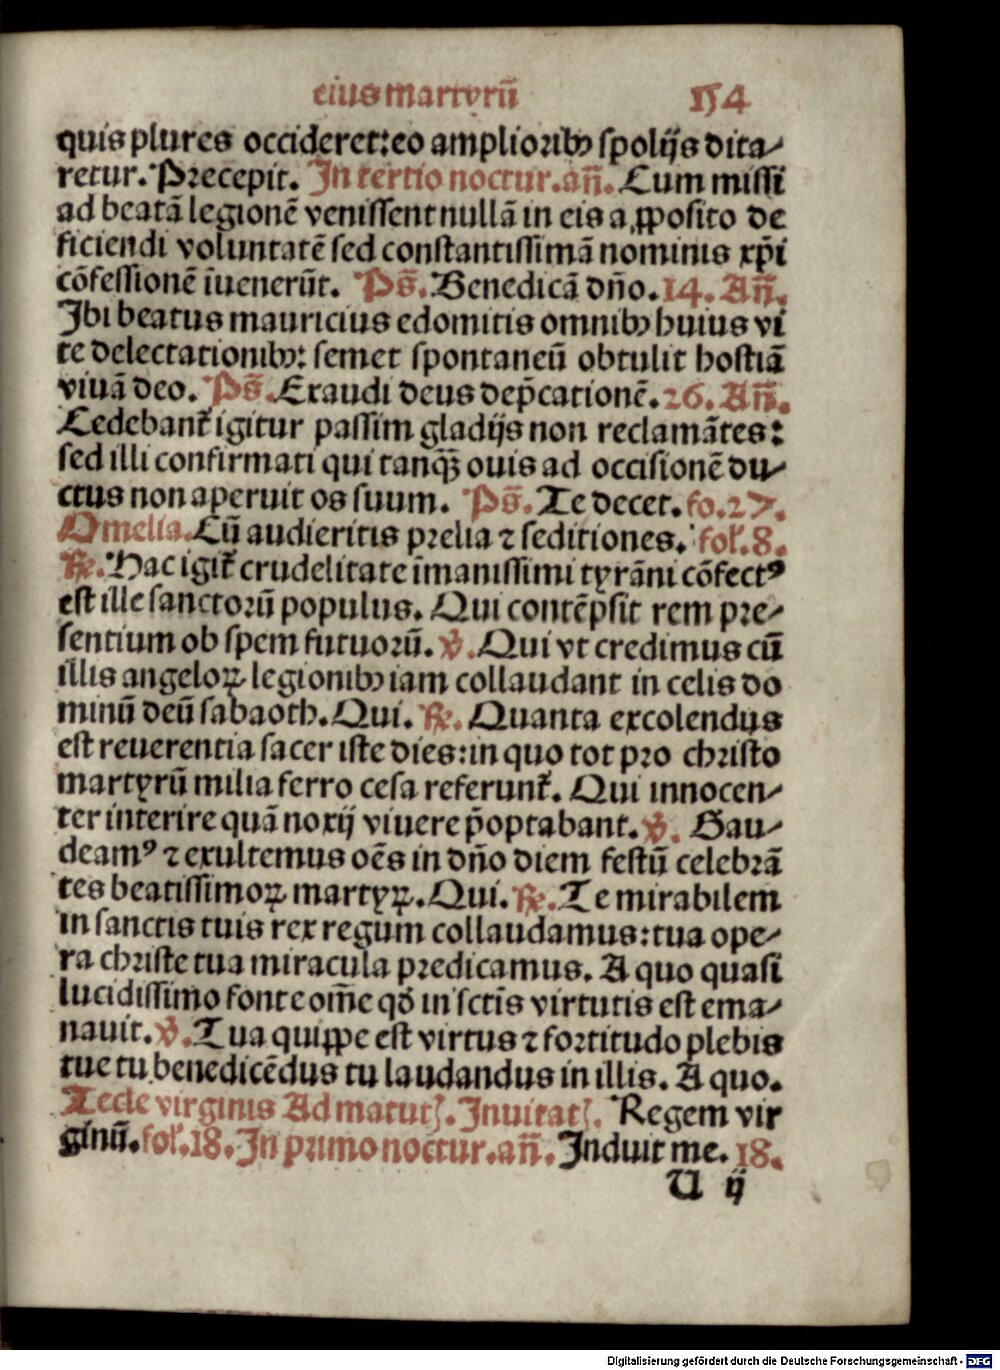 eius martyrū 154
quis plures occideret: eo amplioribꝰ spolijs dita⸗
retur. Precepit. In tertio noctur. añ. Cum missi
ad beatā legionē venissent nullā in eis a ꝓposito de
ficiendi voluntatē sed constantissimā nominis xp̄i
cōfessionē īuenerūt. Ps̄. Benedicā dño. 14. Añ.
Ibi beatus mauricius edomitis omnibꝰ huius vi
te delectationibꝰ: semet spontaneū obtulit hostiā
viuā deo. Ps̄. Exaudi deus dep̄cationē. 26. Añ.
Cedebant᷑ igitur passim gladijs non reclamātes:
sed illi confirmati qui tanqꝫ̄ ouis ad occisionē du⸗
ctus non aperuit os suum. Ps̄. Te decet. fo. 27.
Omelia. Cū audieritis prelia ⁊ seditiones. fol. 8.
℟. Hac igit᷑ crudelitate īmanissimi tyrāni cōfectꝰ
est ille sanctorū populus. Qui contēpsit rem pre⸗
sentium ob spem futuorū. ℣. Qui vt credimus cū
illis angeloꝝ legionibꝰ iam collaudant in celis do
minū deū sabaoth. Qui. ℟. Quanta excolendus
est reuerentia sacer iste dies: in quo tot pro christo
martyrū milia ferro cesa referunt᷑. Qui innocen⸗
ter interire quā noxij viuere p̄optabant. ℣. Gau⸗
deamꝰ ⁊ exultemus oēs in dño diem festū celebrā
tes beatissimoꝝ martyꝝ. Qui. ℟. Te mirabilem
in sanctis tuis rex regum collaudamus: tua ope⸗
ra christe tua miracula predicamus. A quo quasi
lucidissimo fonte om̄e qď in sctīs virtutis est ema⸗
nauit. ℣. Tua quiꝓpe est virtus ⁊ fortitudo plebis
tue tu benedicēdus tu laudandus in illis. A quo.
Tecle virginis Ad matutꝭ. Inuitatꝭ. Regem vir
ginū. fol. 18. In primo noctur. añ. Induit me. 18.
U ij
Digitalisierung gefördert durch die Deutsche Forschungsgemeinschaft - DFG